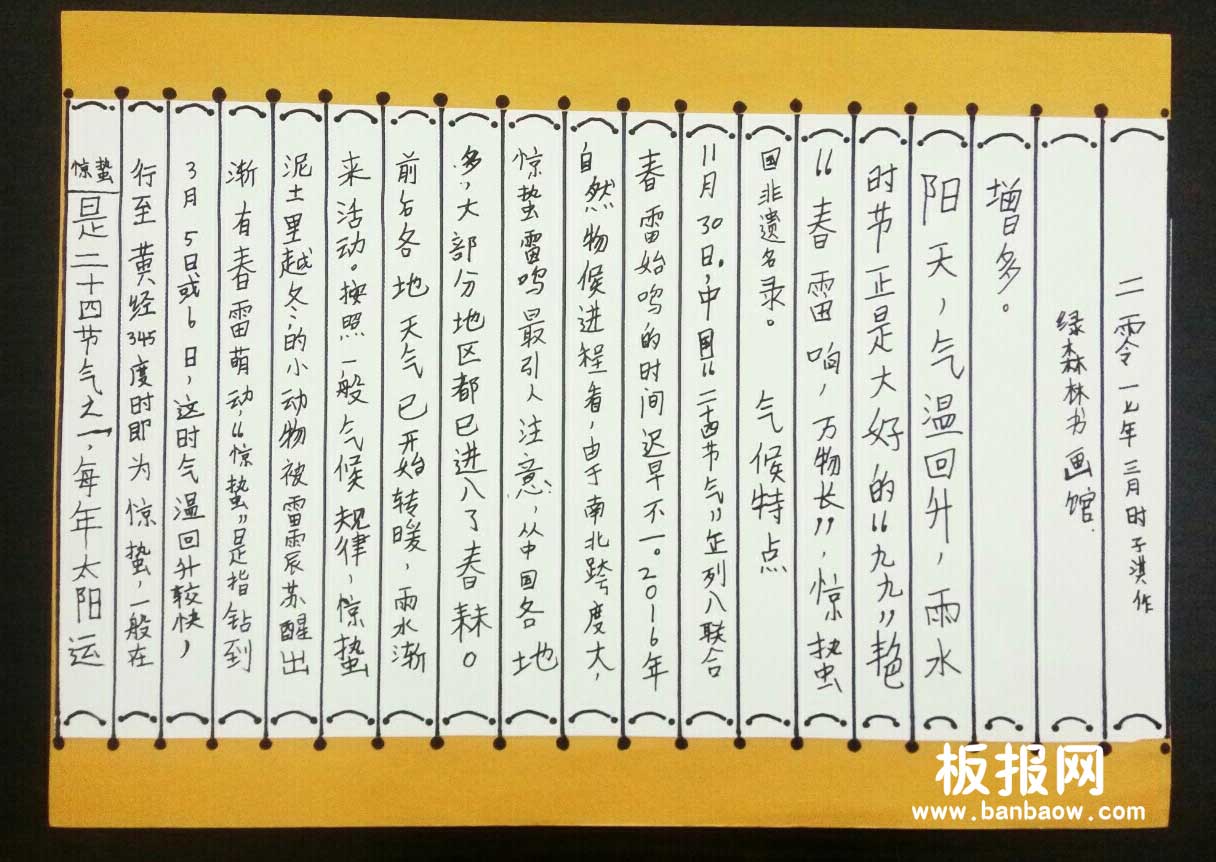 惊蛰
是二十四节气之一，每年太阳运
行至黄经345度时即为惊蛰，一般在
3月5日或6日，这时气温回升较快，
渐有春雷萌动，“惊蛰”是指钻到
泥土里越冬的小动物被雷震苏醒出
来活动。按照一般气候规律，惊蛰
前后各地天气已开始转暖，雨水渐
多，大部分地区都已进入了春耕。
惊蛰雷鸣最引人注意，从中国各地
自然物候进程看，由于南北跨度大，
春雷始鸣的时间迟早不一。2016年
11月30日，中国“二十四节气”正列入联合
国非遗名录。 气候特点
“春雷响，万物长”，惊蛰
时节正是大好的“九九”艳
阳天，气温回升，雨水
增多。
绿森林书画馆
二零一七年三月时子淇作
板报网
www.banbaow.com